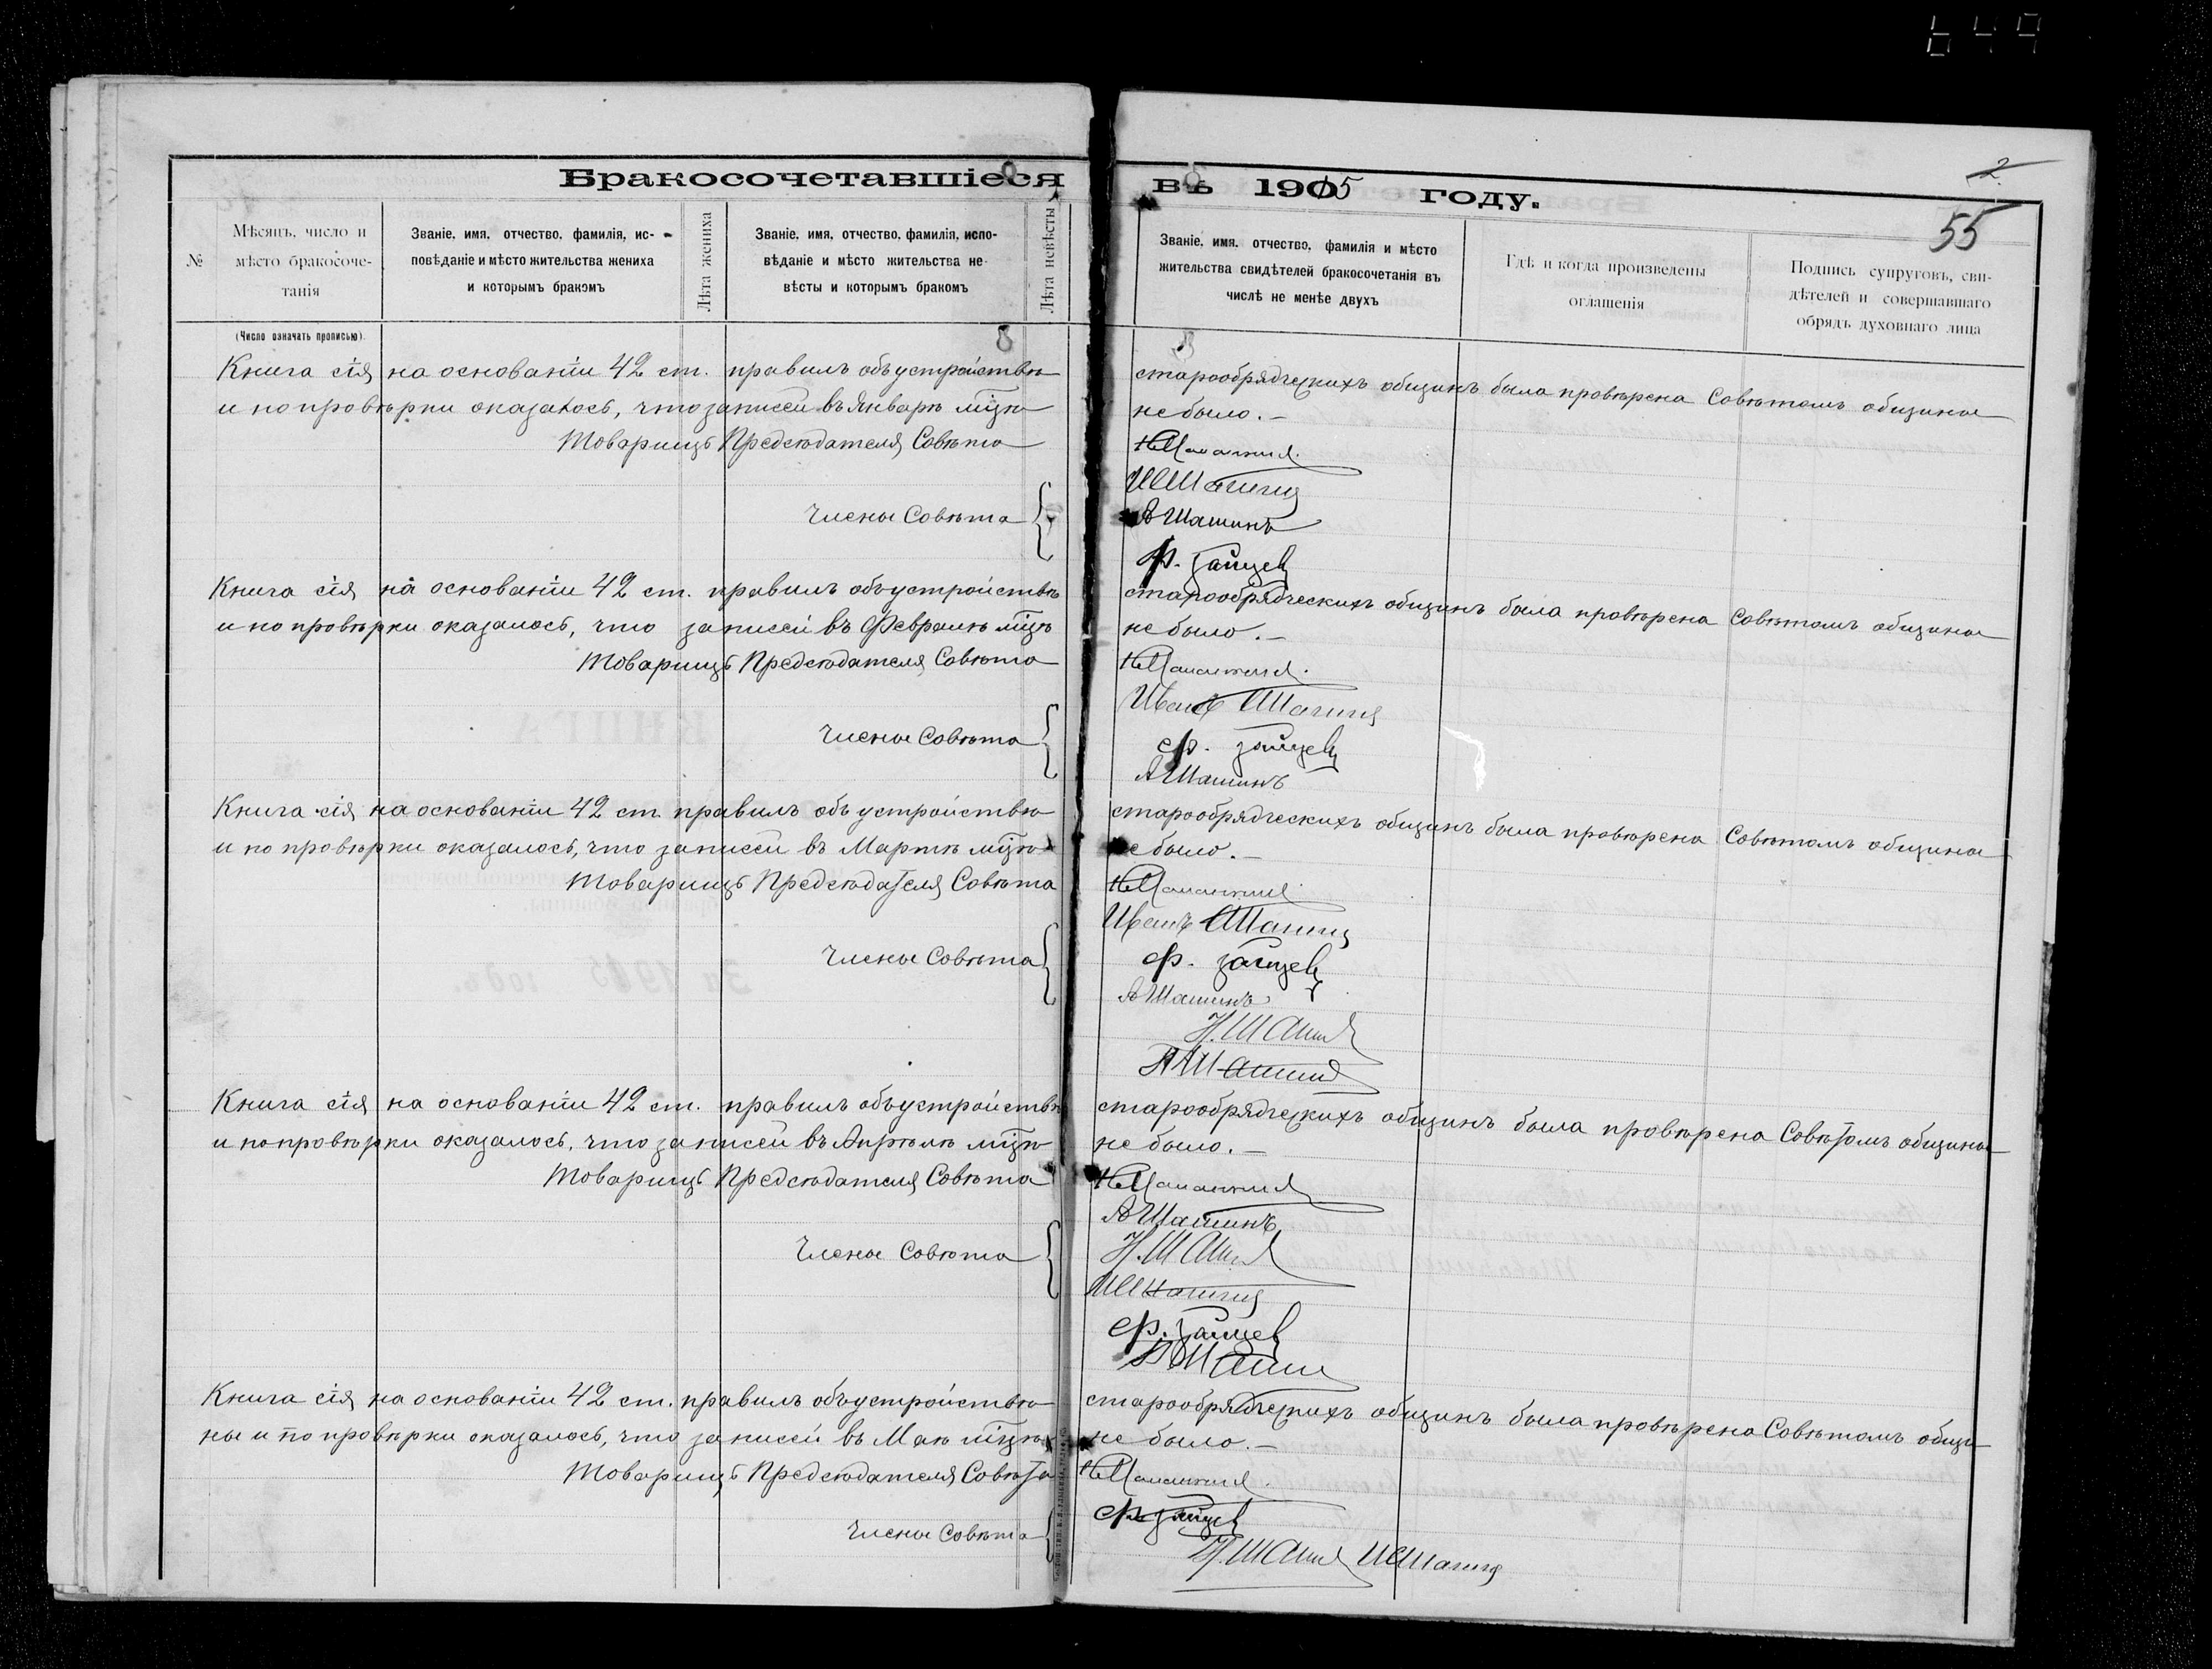 649
Бракосочетавшіеся въ 1915 году.
2
55
№
Мѣсяцъ, число и
мѣсто бракосоче-
танія
(Число означать прописью).
Званіе, имя, отчество, фамилія, ис-
повѣданіе и мѣсто жительства жениха
и которымъ бракомъ
Лѣта жениха
Званіе, имя, отчество, фамилія, испо-
вѣданіе и мѣсто жительства не-
вѣсты и которымъ бракомъ
Лѣта невѣсты
Званіе, имя, отчество, фамилія и мѣсто
жительства свидѣтелей бракосочетанія въ
числѣ не менѣе двухъ
Гдѣ и когда произведены
оглашенія
Подпись супруговъ, сви-
дѣтелей и совершавшаго
обрядъ духовнаго лица
Книга сія на основаніи 42 ст. правилъ объ устройствѣ старообрядческихъ общинъ была провѣрена Совѣтомъ общины
и по провѣрки оказалось, что записей въ Январѣ мѣцѣ не было.-
Товарищъ Предсѣдателя Совѣта
Члены Совѣта
ИШагинъ
АШашинъ
Ф. Зайцев
Книга сія на основаніи 42 ст. правилъ объ устройствѣ старообрядческихъ общинъ была провѣрена Совѣтомъ общины
и по провѣрки оказалось, что записей въ Февралѣ мѣцѣ не было.-
Товарищъ Предсѣдателя Совѣта
Члены Совѣта
Иванъ Шагинъ
Ф. Зайцев
АШашинъ
Книга сія на основаніи 42 ст. правилъ объ устройствѣ старообрядческихъ общинъ была провѣрена Совѣтомъ общины
и по провѣрки оказалось, что записей въ Мартѣ мѣцѣ не было.-
Товарищъ Предсѣдателя Совѣта
Члены Совѣта
Иванъ Шагинъ
Ф. Зайцев
АШашинъ
Книга сія на основаніи 42 ст. правилъ объ устройствѣ старообрядческихъ общинъ была провѣрена Совѣтомъ общины
и по провѣрки оказалось, что записей въ Апрѣлѣ мѣцѣ не было.-
Товарищъ Предсѣдателя Совѣта
АШашинъ
Члены Совѣта
ИШагинъ
Ф. Зайцев
Книга сія на основаніи 42 ст. правилъ объ устройствѣ старообрядческихъ общинъ была провѣрена Совѣтомъ общи-
ны и по провѣрки оказалось, что записей въ Маѣ мѣцѣ не было.-
Товарищъ Предсѣдателя Совѣта
Ф. Зайцев
Члены Совѣта
ИШагинъ